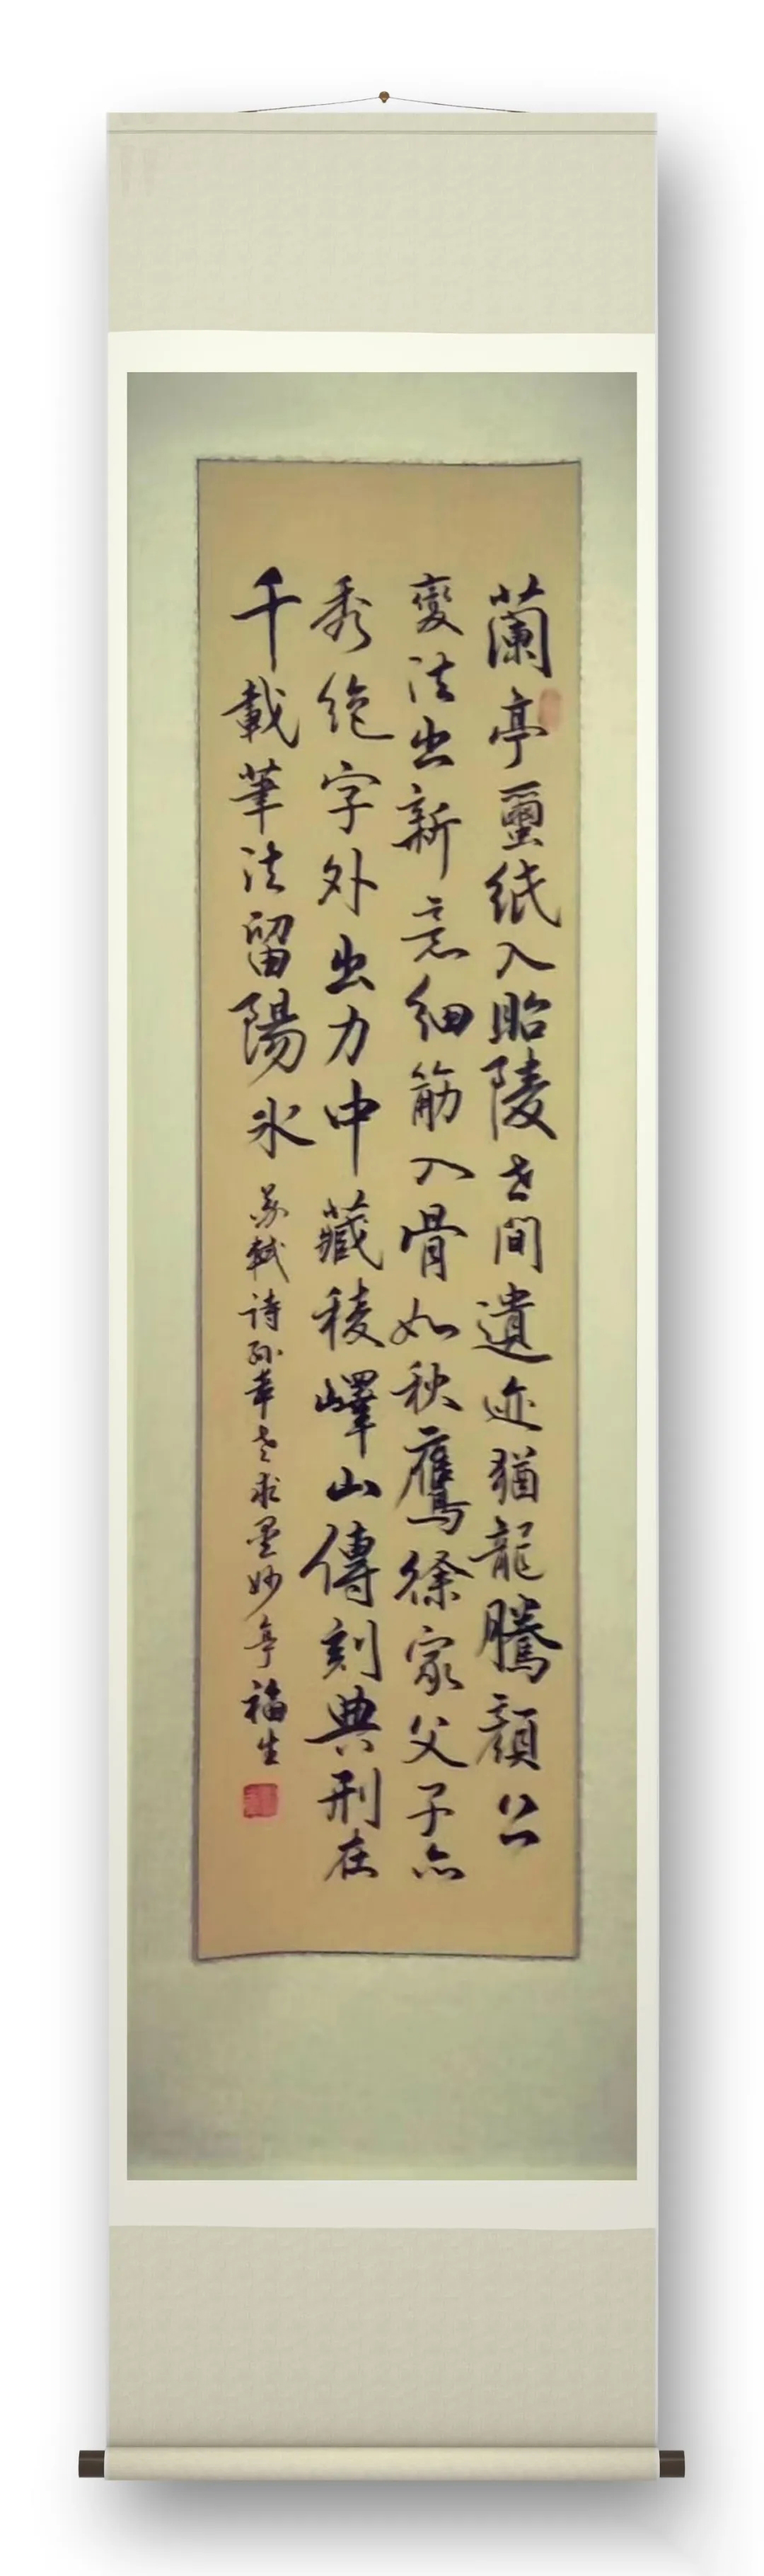 蘭亭蠒紙入昭陵世間遺迹猶龍騰顏公
變法出新意細筋入骨如秋鷹徐家父子亦
秀絶字外出力中藏稜嶧山傳刻典刑在
千載筆法留陽氷 苏軾诗孙莘老求墨妙亭 福生